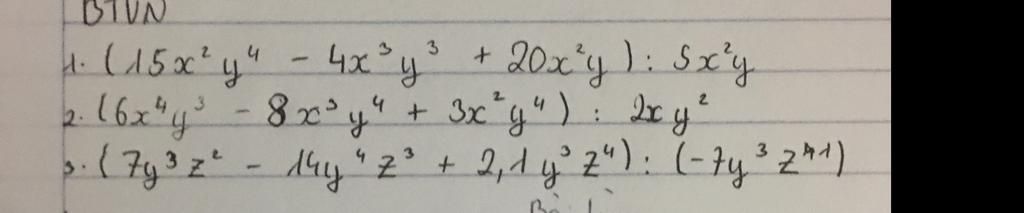 BTVN
1. (15x²y⁴ - 4x³y³ + 20x²y) : 5x²y
2. (6x⁴y³ - 8x³y⁴ + 3x²y⁴) : 2xy²
3. (7y³z² - 14y⁴z³ + 2,1y³z⁴) : (-7y³z¹)